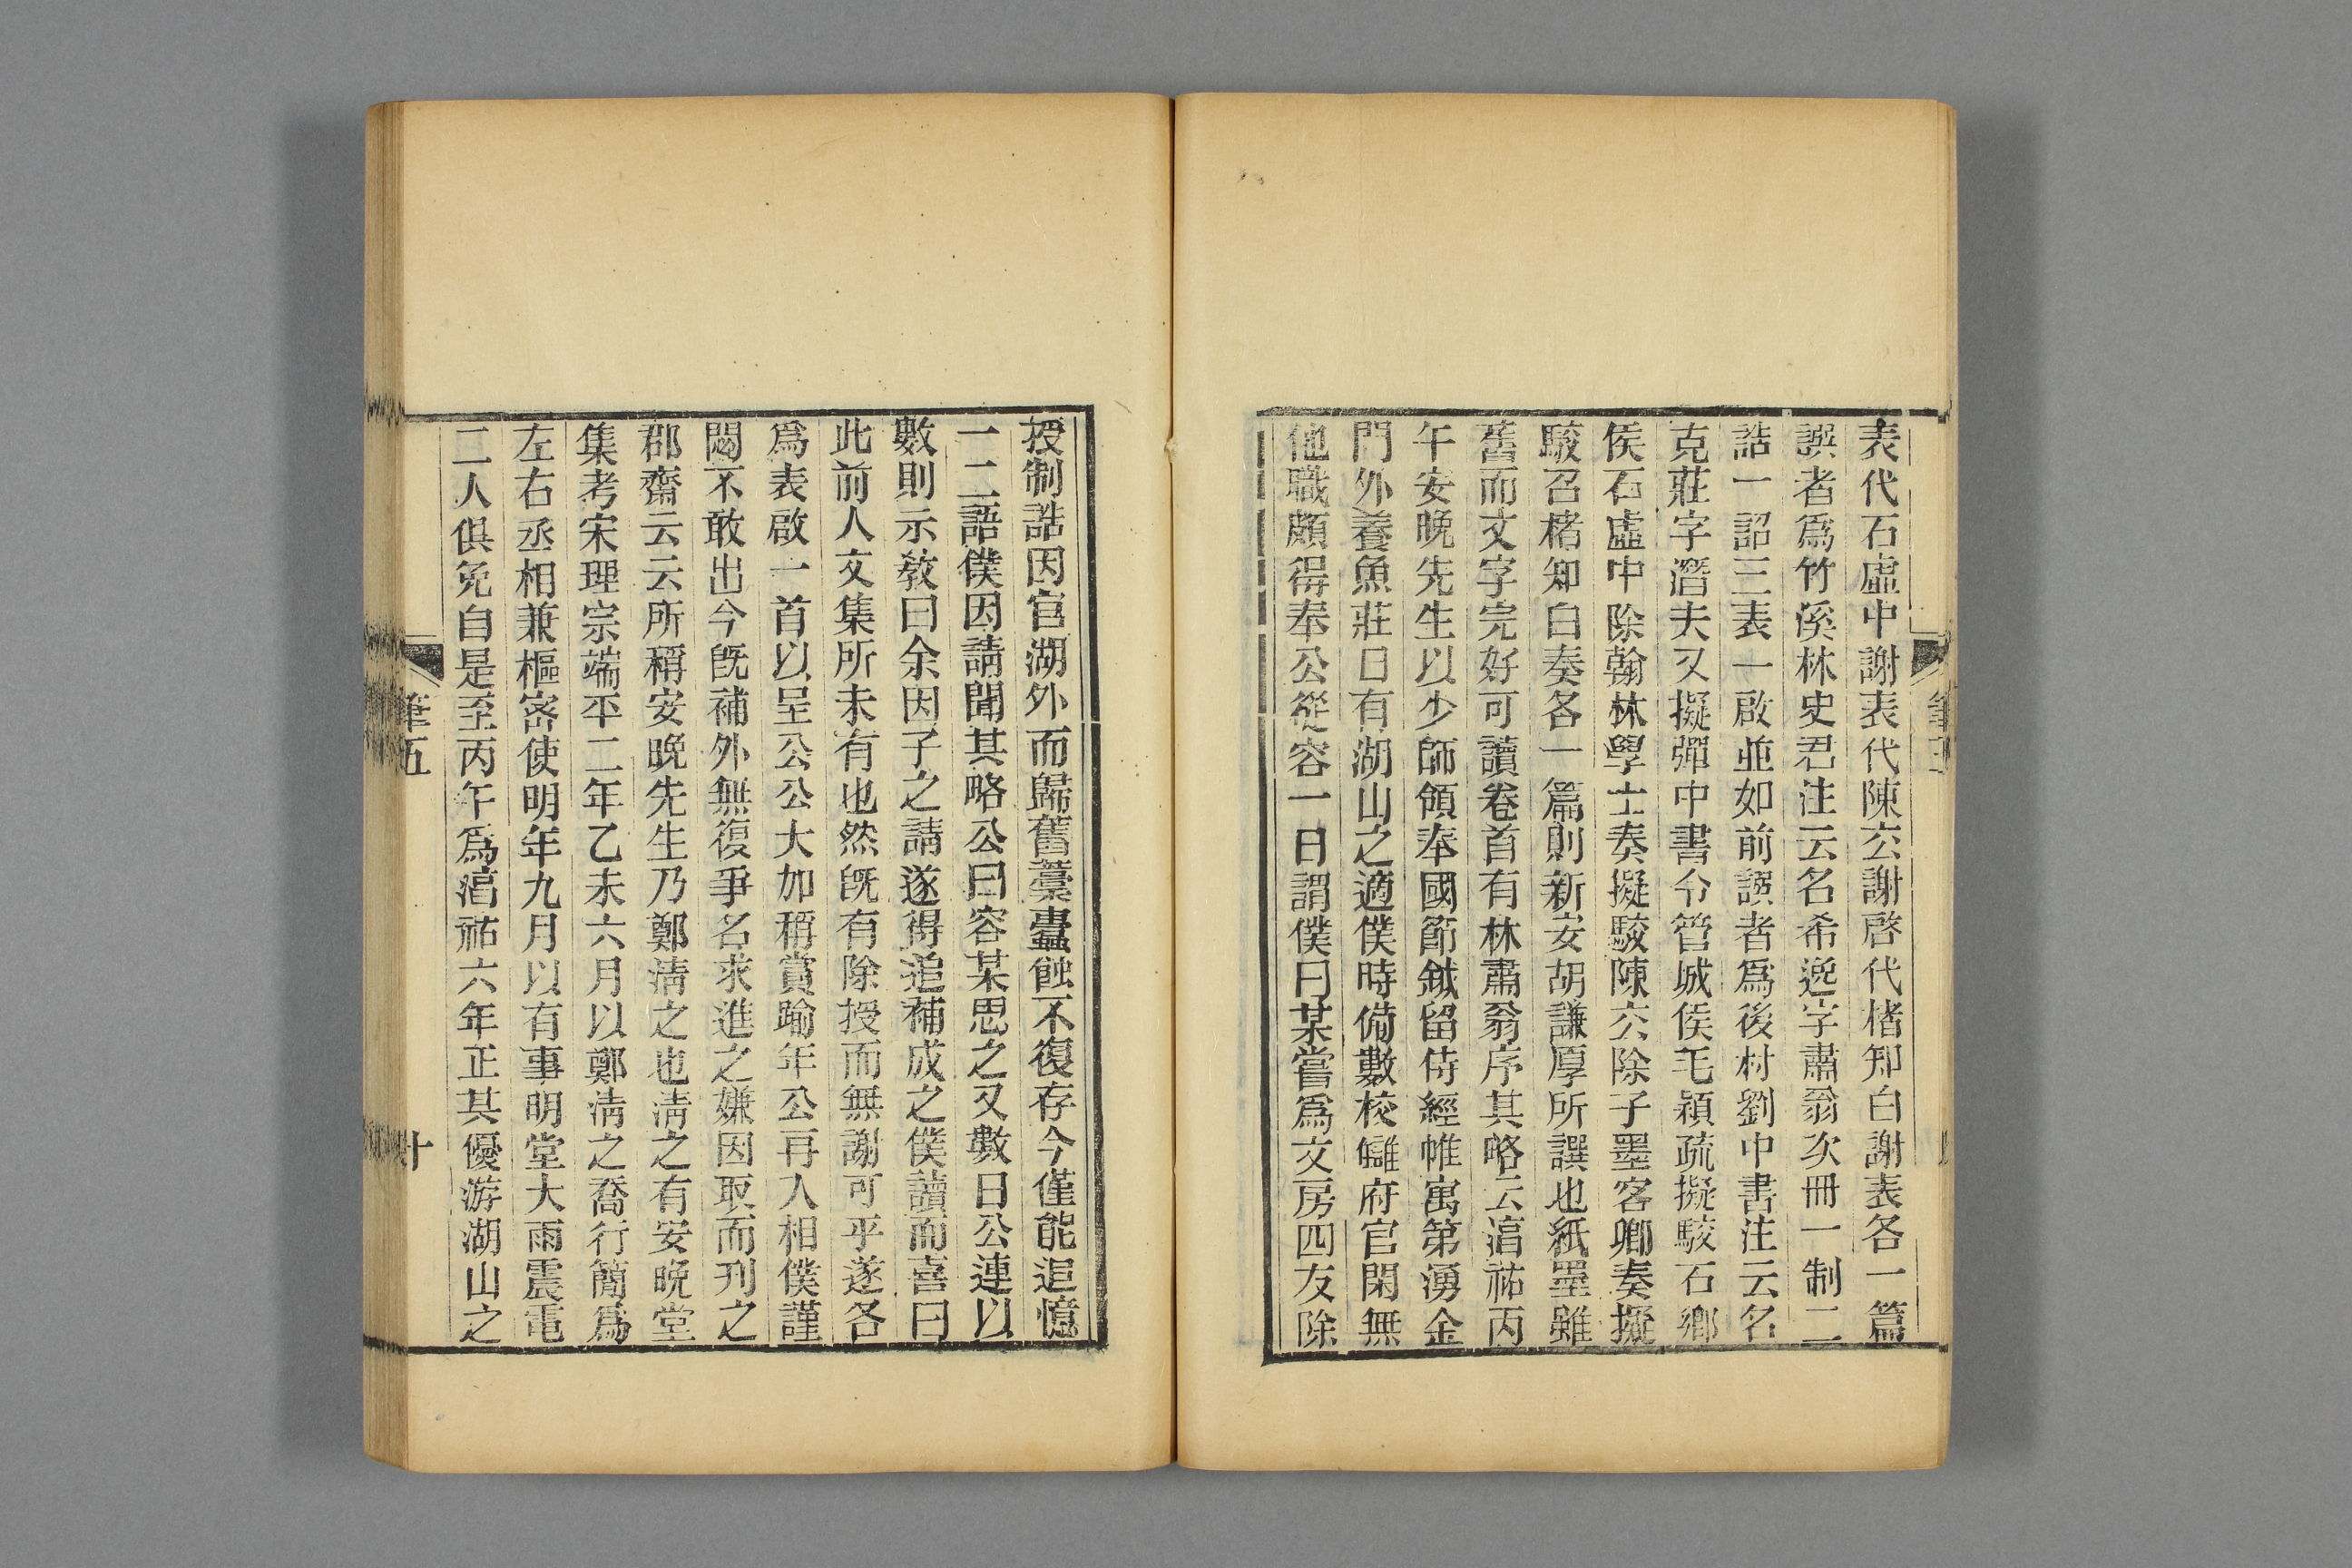 表代石虛中謝表代陳玄謝啓代楮知白謝表各一篇
誤者爲竹溪林史君注云名希逸字肅翁次冊一制二
誥一詔三表一啟並如前誤者爲後村劉中書注云名
克莊字潛夫又擬彈中書令管城侯毛穎疏擬駁石鄉
侯石虛中除翰林學士奏擬駁陳玄除子墨客卿奏擬
駁召楮知白奏各一篇則新安胡謙厚所譔也紙墨雖
舊而文字完好可讀卷首有林肅翁序其略云淳祐丙
午安晚先生以少師領奉國節鉞留侍經帷寓第湧金
門外養魚莊日有湖山之適僕時備數校讎府官閑無
他職頗得奉公從容一日謂僕曰某嘗爲文房四友除
授制誥因官湖外而歸舊藁蠹蝕不復存今僅能追憶
一二語僕因請聞其略公曰容某思之又數日公連以
數則示教曰余因子之請遂得追補成之僕讀而喜曰
此前人文集所未有也然旣有除授而無謝可乎遂各
爲表啟一首以呈公公大加稱賞踰年公再入相僕謹
閟不敢出今旣補外無復爭名求進之嫌因取而刊之
郡齋云云所稱安晚先生乃鄭淸之也淸之有安晚堂
集考宋理宗端平二年乙未六月以鄭淸之喬行簡爲
左右丞相兼樞密使明年九月以有事明堂大雨震電
二人俱免自是至丙午爲淳祐六年正其優游湖山之
筆五
十